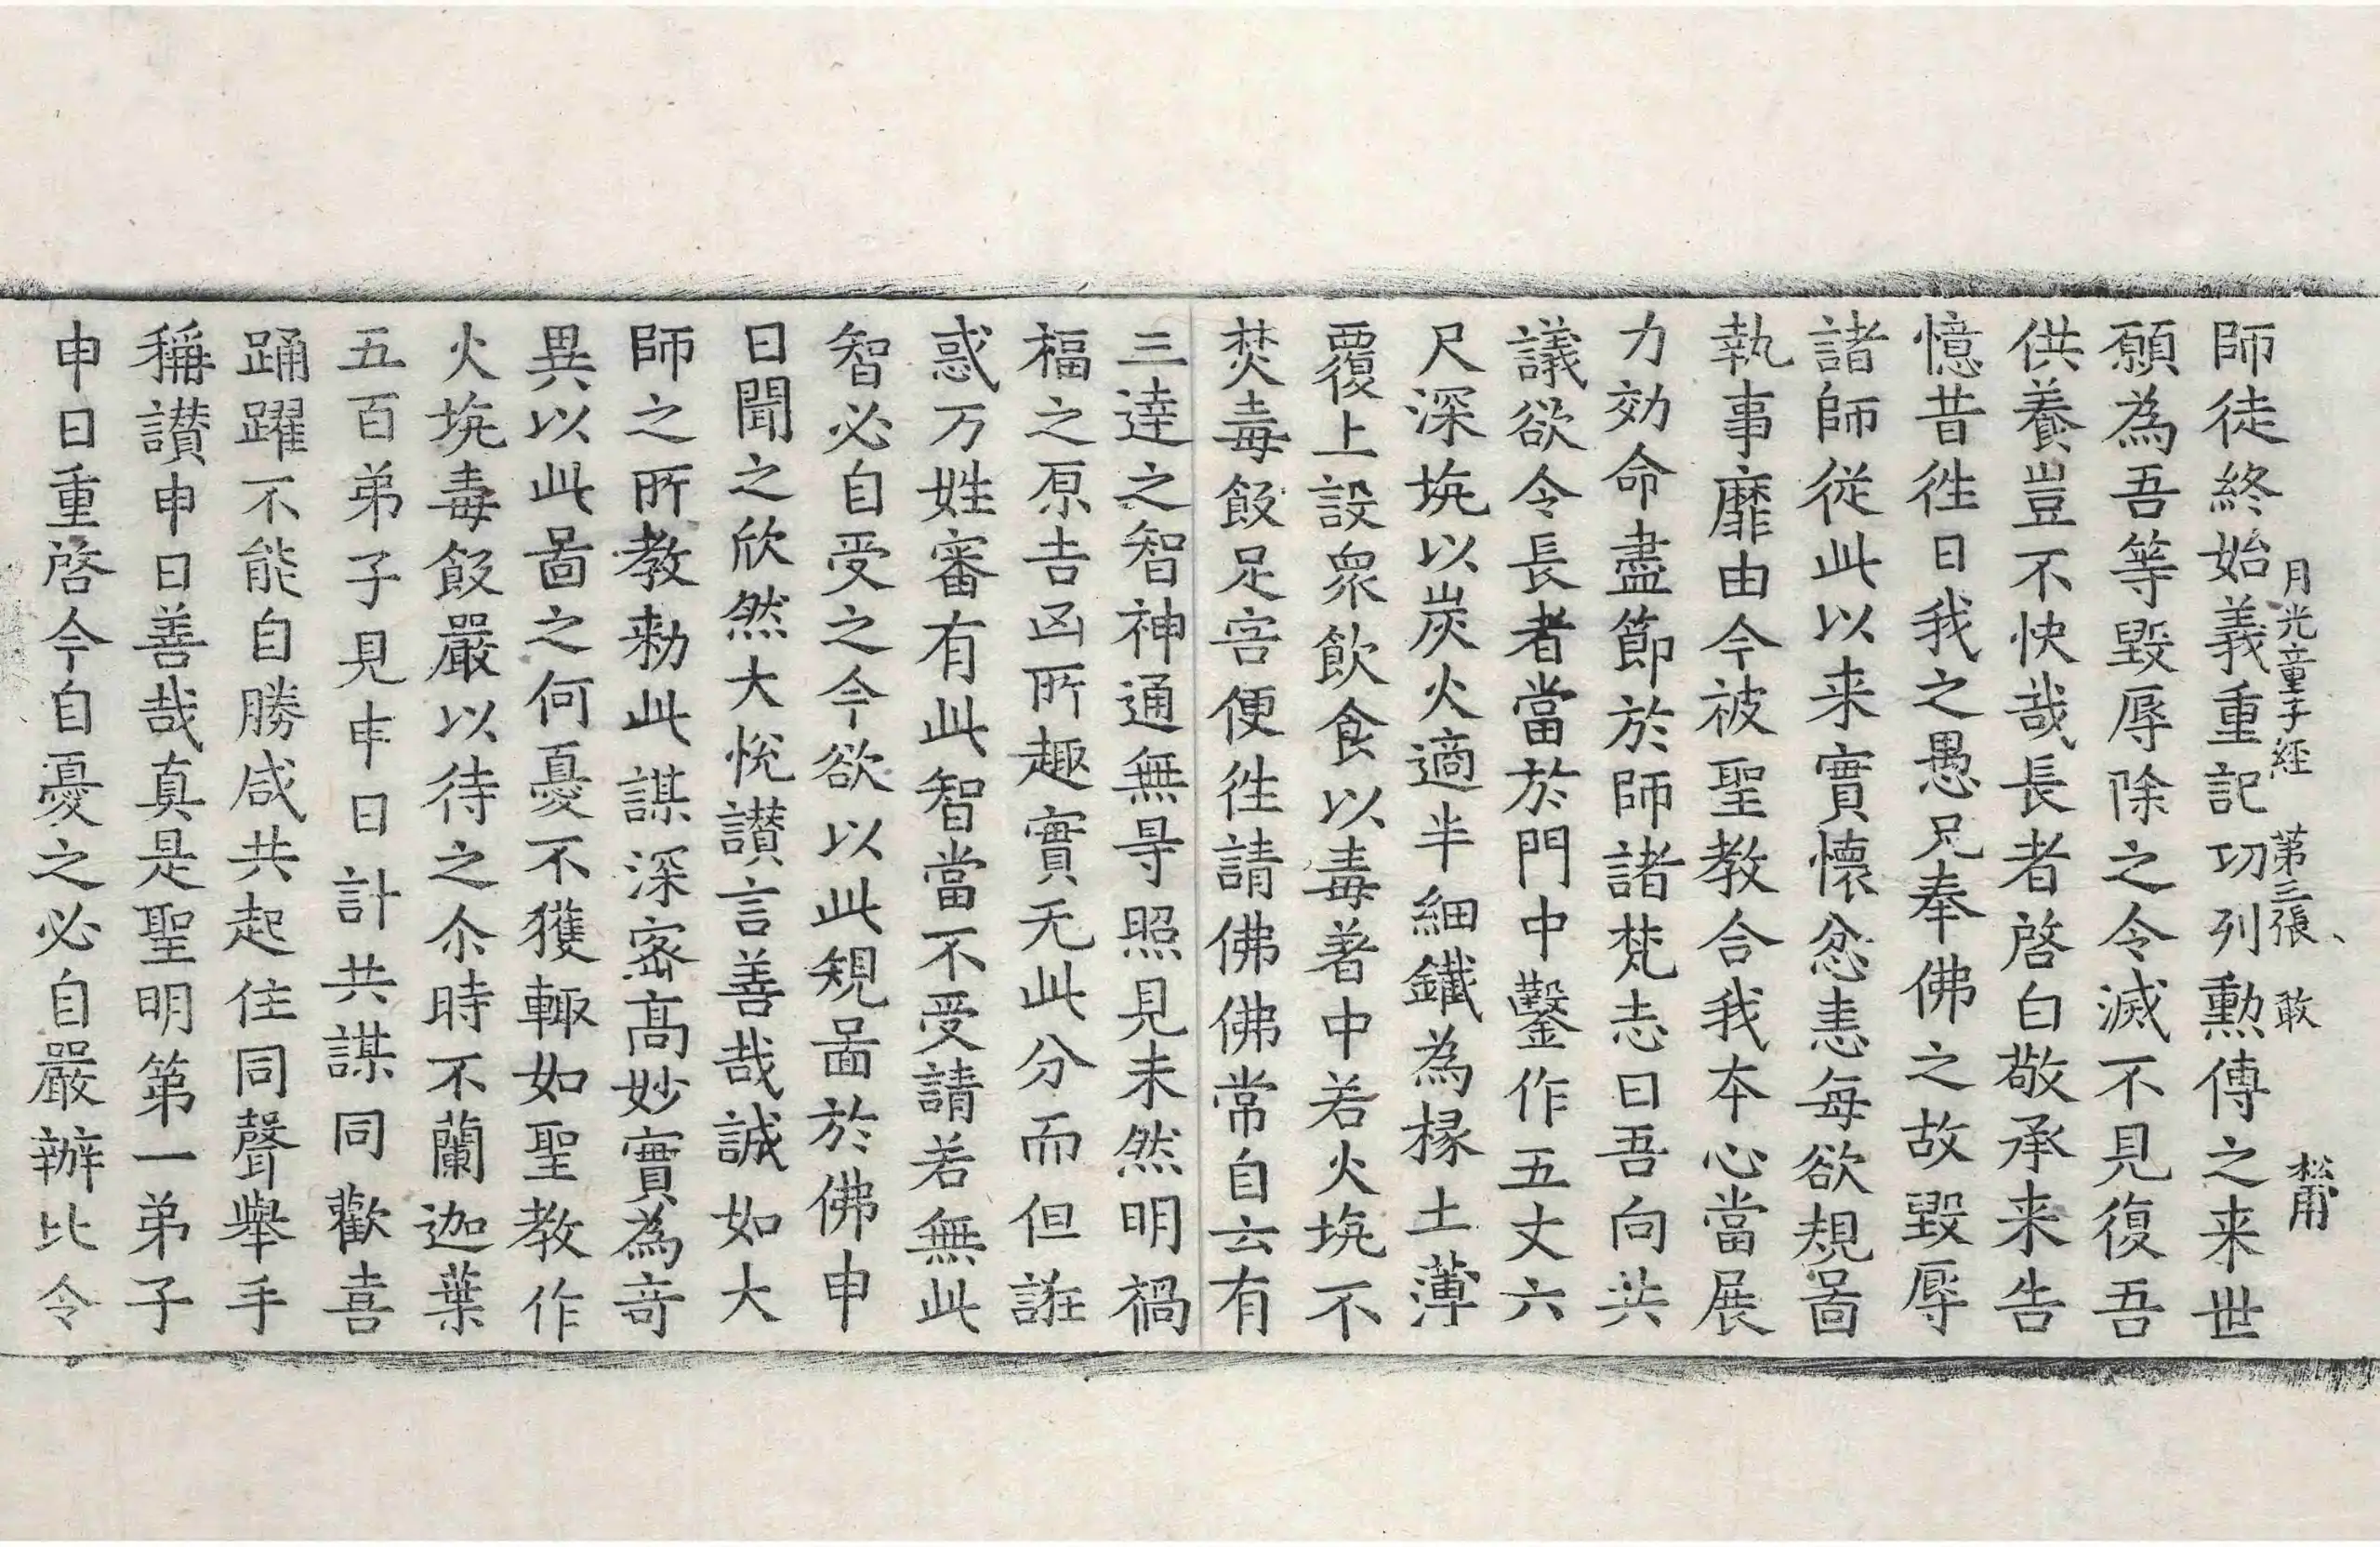 月光童子經　第三張　敢
師徒終始義重記功列勳傳之来世
願為吾等毀辱除之令滅不見復吾
供養豈不快哉長者啓白敬承来告
憶昔徃日我之愚兄奉佛之故毀辱
諸師從此以来實懷忿恚每欲規啚
執事靡由今被聖教合我本心當展
力効命盡節於師諸梵志曰吾向共
議欲令長者當於門中鑿作五丈六
尺深垸以炭火適半細鐵為椽土薄
覆上設衆飲食以毒著中若火垸不
焚毒飯足害便徃請佛佛常自云有
三達之智神通無㝵照見未然明禍
福之原吉凶所趣實无此分而但誑
惑万姓審有此智當不受請若無此
智必自受之今欲以此規啚於佛申
日聞之欣然大悅讃言善哉誠如大
師之所教勑此謀深密高妙實為竒
異以此啚之何憂不獲輙如聖教作
火垸毒飯嚴以待之尒時不蘭迦葉
五百弟子見申日計共謀同歡喜
踊躍不能自勝咸共起住同聲舉手
稱讃申日善哉真是聖明第一弟子
申日重啓今自憂之必自嚴辦比令